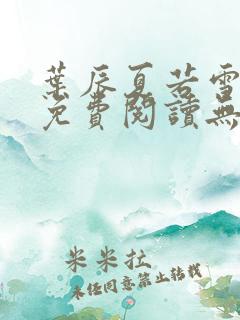 葉辰夏若雪
免費閱讀無
米米拉
未经同意禁止转载